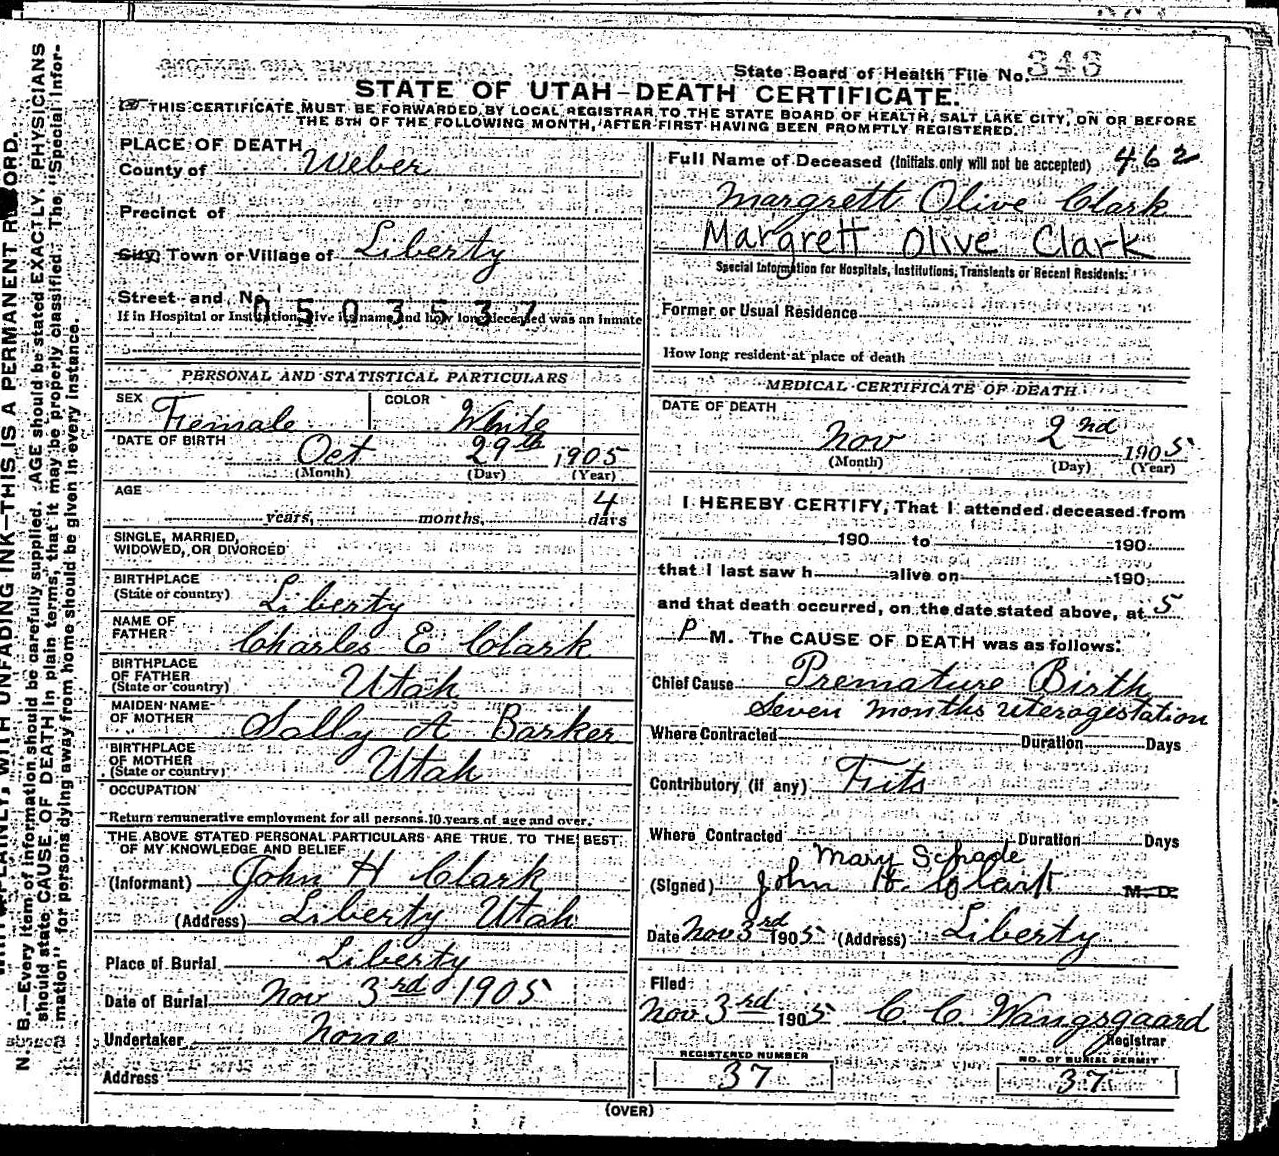 State Board of Health File No. 346
STATE OF UTAH—DEATH CERTIFICATE.
THIS CERTIFICATE MUST BE FORWARDED BY LOCAL REGISTRAR TO THE STATE BOARD OF HEALTH, SALT LAKE CITY, ON OR BEFORE
THE 5TH OF THE FOLLOWING MONTH, AFTER FIRST HAVING BEEN PROMPTLY REGISTERED.
PLACE OF DEATH
County of Weber
Precinct of
City, Town or Village of Liberty
Street and No.
0503537
If in Hospital or Institution, give its name and how long deceased was an inmate
PERSONAL AND STATISTICAL PARTICULARS
SEX Female COLOR White
DATE OF BIRTH Oct 29th 1905
(Month) (Day) (Year)
AGE 4
years, months, days
SINGLE, MARRIED,
WIDOWED, OR DIVORCED
BIRTHPLACE
(State or country) Liberty
NAME OF
FATHER Charles E Clark
BIRTHPLACE
OF FATHER
(State or country) Utah
MAIDEN NAME
OF MOTHER Sally A Barker
BIRTHPLACE
OF MOTHER
(State or country) Utah
OCCUPATION
Return remunerative employment for all persons 10 years of age and over.
THE ABOVE STATED PERSONAL PARTICULARS ARE TRUE TO THE BEST
OF MY KNOWLEDGE AND BELIEF
(Informant) John H Clark
(Address) Liberty Utah
Place of Burial Liberty
Date of Burial Nov 3rd 1905
Undertaker None
Address
Full Name of Deceased (Initials only will not be accepted) 462
Margrett Olive Clark
Margrett Olive Clark
Special Information for Hospitals, Institutions, Transients or Recent Residents:
Former or Usual Residence
How long resident at place of death
MEDICAL CERTIFICATE OF DEATH
DATE OF DEATH
Nov 2nd 1905
(Month) (Day) (Year)
I HEREBY CERTIFY, That I attended deceased from
190 to 190
that I last saw h alive on 190
and that death occurred, on the date stated above, at 5
P M. The CAUSE OF DEATH was as follows:
Chief Cause Premature Birth
Seven months uterogestation
Where Contracted Duration Days
Contributory (if any) Fits
Where Contracted Duration Days
Mary Schade
(Signed) John H. Clark M. D.
Date Nov 3rd 1905 (Address) Liberty
Filed
Nov 3rd 1905 C. C. Wangsgaard
Registrar
REGISTERED NUMBER
37
NO. OF BURIAL PERMIT
37
(OVER)
PLAINLY, WITH UNFADING INK—THIS IS A PERMANENT RECORD.
N. B.—Every item of information should be carefully supplied. AGE should be stated EXACTLY. PHYSICIANS
should state CAUSE OF DEATH in plain terms, that it may be properly classified. The "Special Infor-
mation" for persons dying away from home should be given in every instance.